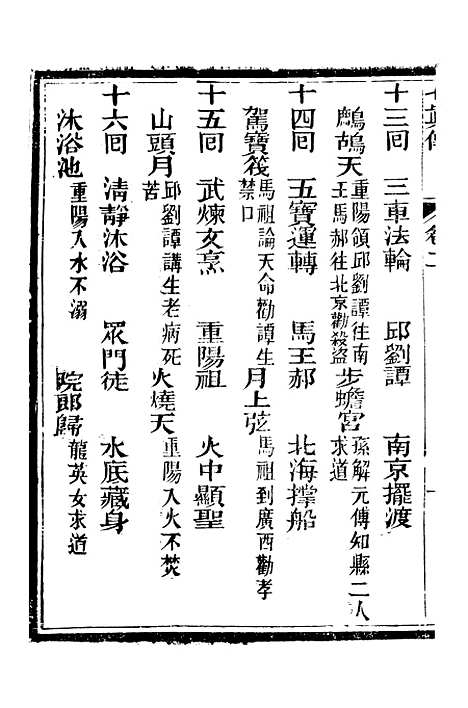 十三回　三車法輪　邱劉譚　南京擺渡
鷓鴣天　重陽領邱劉譚往南　王馬郝往北京勸殺盜　步蟾宮　孫解元傅知縣二人　求道
十四回　五寶運轉　馬王郝　北海撑船
駕寶筏　馬祖論天命勸譚生　禁口　月上弦　馬祖到廣西勸孝
十五回　武煉文烹　重陽祖　火中顯聖
山頭月　邱劉譚講生老病死　苦　火燒天　重陽入火不焚
十六回　清靜沐浴　眾門徒　水底藏身
沐浴池　重陽入水不溺　阮郎歸　龍英女求道